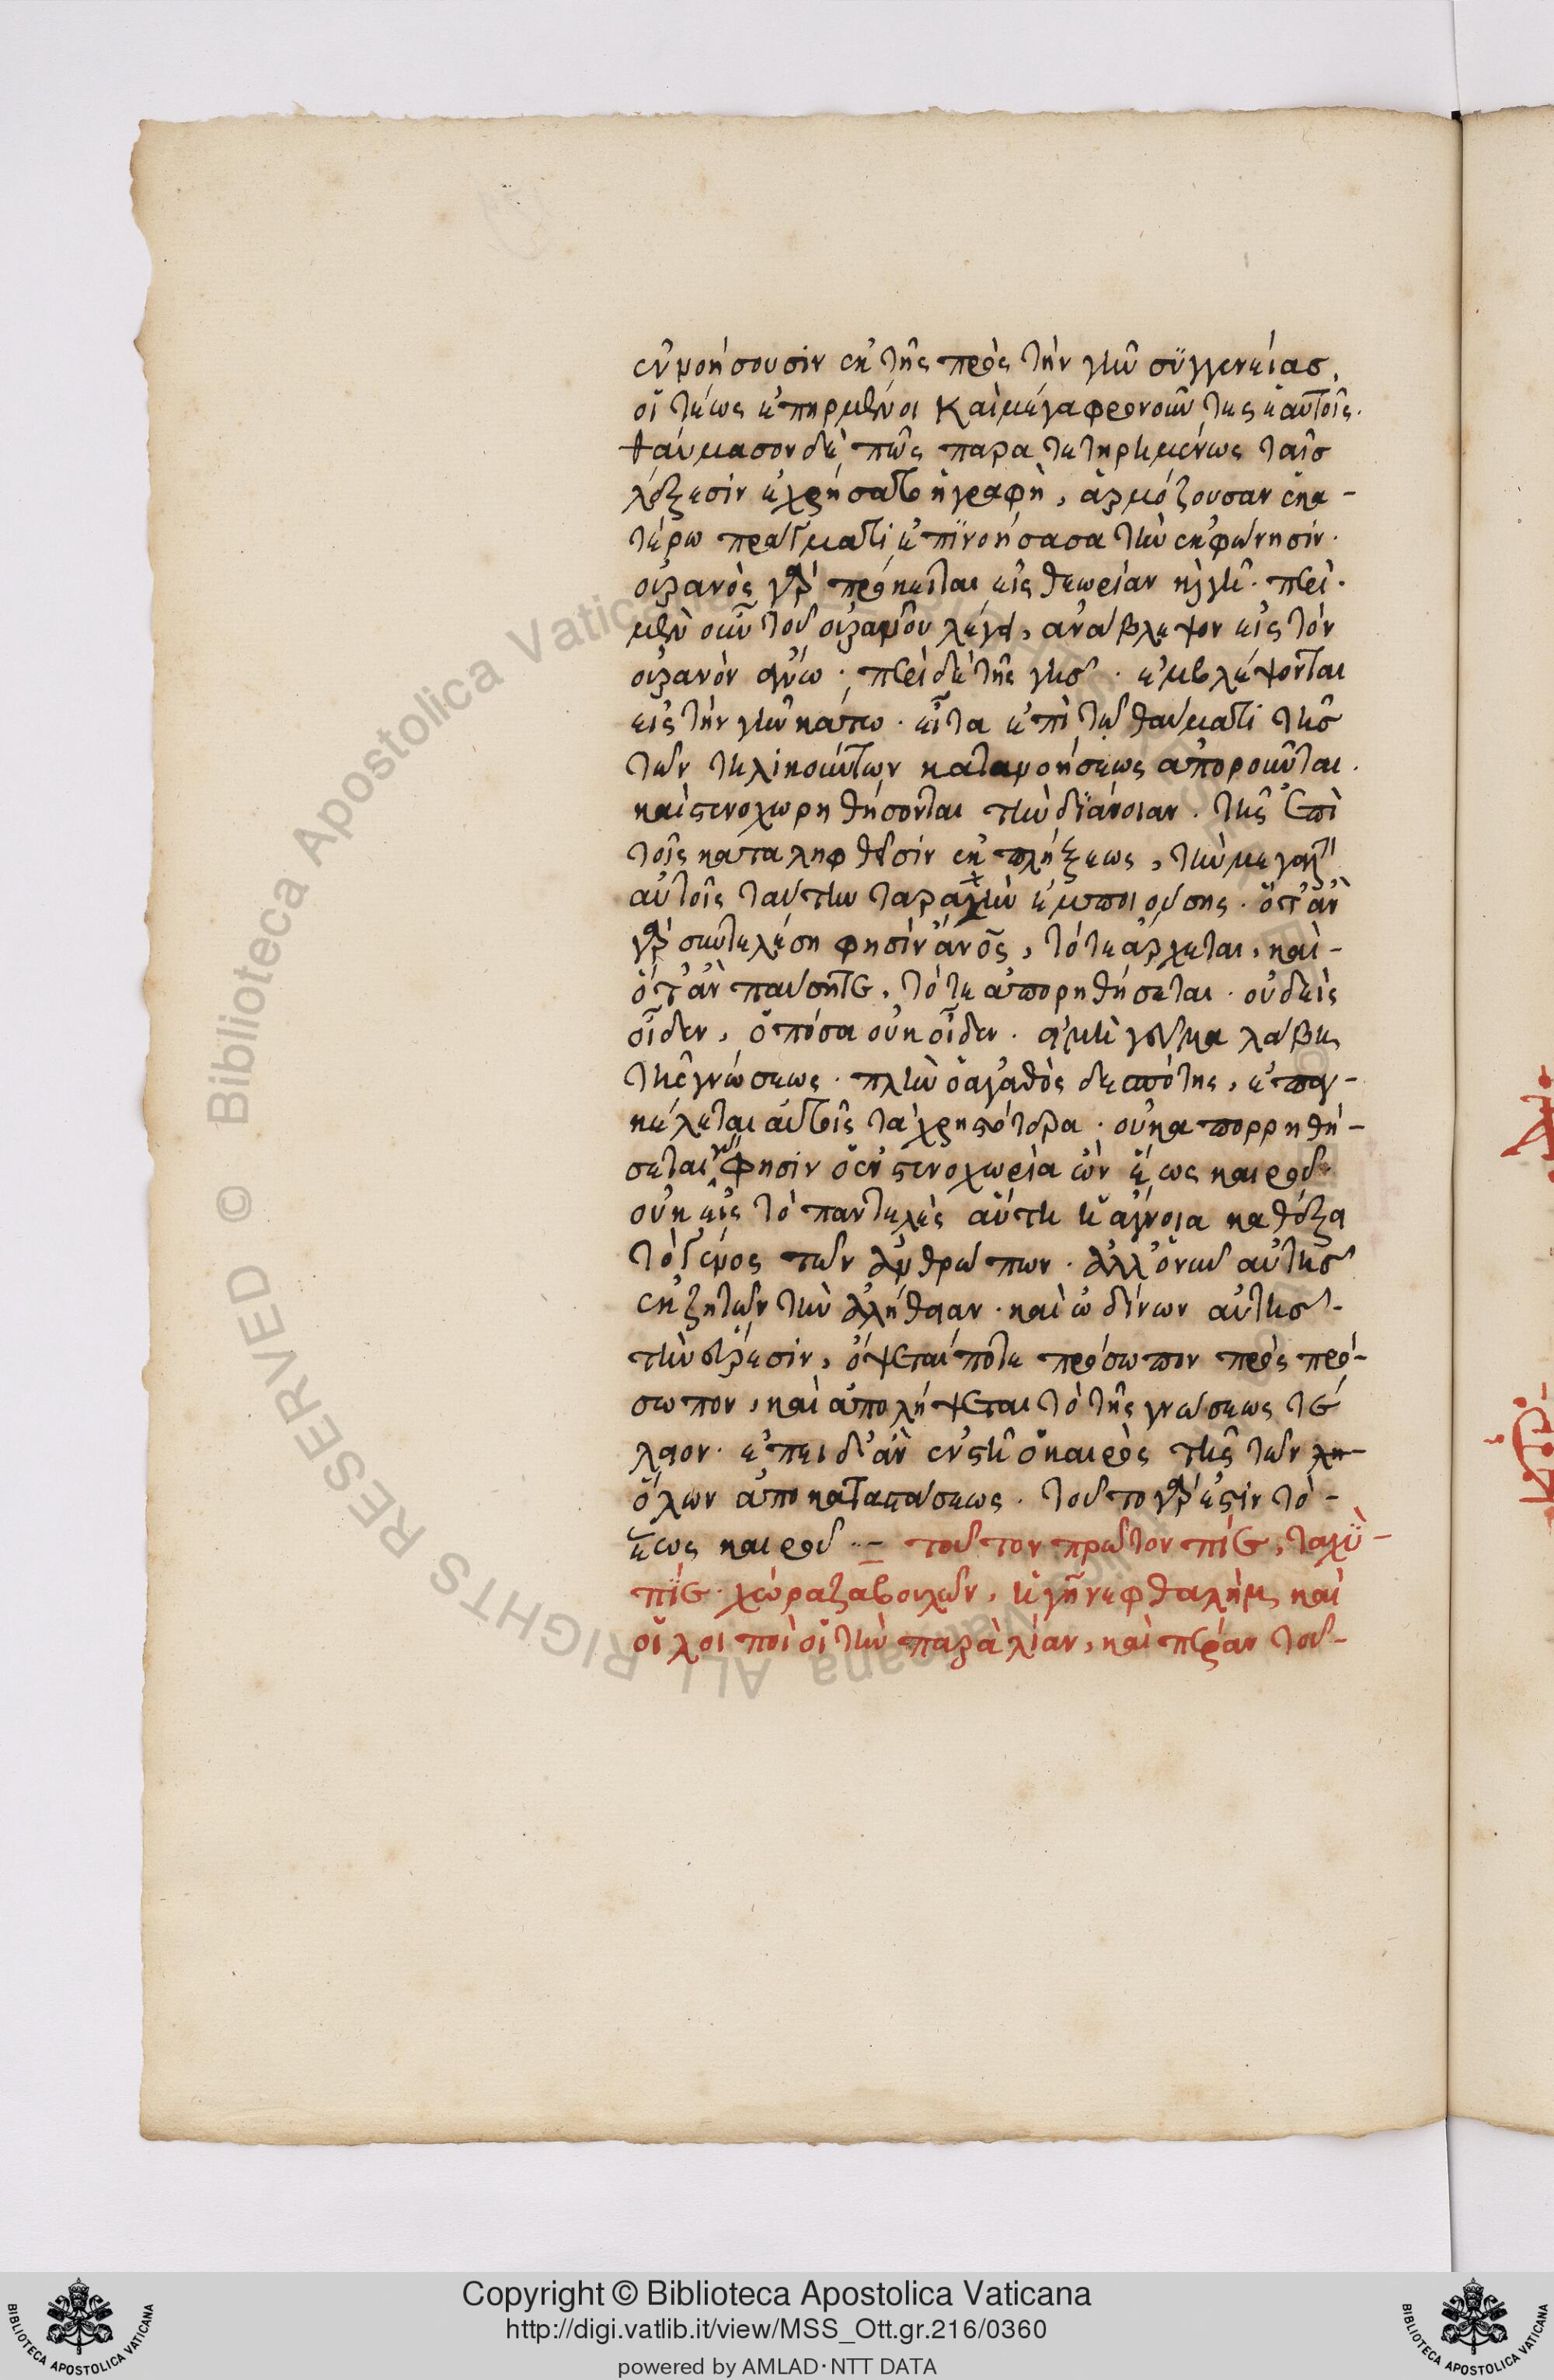 ἐννοήσουσιν ἐκ τῆς πρὸς τὴν γῆν συγγενείας,
οἱ τέως ἐπηρμένοι καὶ μέγα φρονοῦντες ἑαυτοῖς.
θαύμασον δὲ πῶς παρατετηρημένως ταῖς
λέξεσιν ἐχρήσατο ἡ γραφὴ, ἁρμόζουσαν ἑκα-
τέρω πράγματι ἐπινοήσασα τὴν ἐκφώνησιν.
οὐρανὸς γὰρ πρόκειται εἰς θεωρίαν καὶ γῆ. περὶ
μὲν οὖν τοῦ οὐρανοῦ λέγει, ἀνάβλεψον εἰς τὸν
οὐρανὸν ἄνω. περὶ δὲ τῆς γῆς. ἐμβλέψονται
εἰς τὴν γῆν κάτω. εἶτα ἐπὶ τῷ θαύματι τῆς
τῶν τηλικούτων κατανοήσεως ἀποροῦνται.
καὶ στενοχωρηθήσονται τὴν διάνοιαν. τῆς ἐπὶ
τοῖς καταληφθεῖσιν ἐκπλήξεως, τὴν μεγάλην
αὐτοῖς ταύτην ταραχὴν ἐμποιούσης. ὅταν
γὰρ συντελέση φησὶν ἄνος, τότε ἄρχεται, καὶ-
ὅταν παύσηται, τότε ἀπορηθήσεται. οὐδεὶς
οἶδεν, ὁπόσα οὐκ οἶδεν. ἂν μὴ γεῦμα λάβη
τῆς γνώσεως. πλὴν ὁ ἀγαθὸς δεσπότης, ἐπαγ-
γέλεται αὐτοῖς τὰ χρηστότερα. οὐκ ἀπορρηθή-
σεται γὰρ φησὶν ὁ ἐν στενοχωρία ὢν ἕως καιροῦ
οὐκ εἰς τὸ παντελὲς αὕτη ἡ ἄγνοια καθέξει
τὸ γένος τῶν ἀνθρώπων. ἀλλ' ὁ νῦν αὐτῆς
ἐκζητῶν τὴν ἀλήθειαν. καὶ ὠδίνων αὐτῆς-
τὴν εὕρεσιν, ὄψεταί ποτε πρόσωπον πρὸς πρό-
σωπον, καὶ ἀπολήψεται τὸ τῆς γνώσεως τέ
λειον. ἐπειδὰν ἐνστῆ ὁ καιρὸς τῆς τῶν
ὅλων ἀποκαταστάσεως. τοῦτο γάρ ἐστιν τὸ-
ἕως καιροῦ .- τοῦτον πρῶτον πίε, ταχὺ-
πίε. χώρα ζαβουλων, ἡ γῆ νεφθαλὴμ, καὶ
οἱ λοιποὶ οἱ τὴν παραλίαν, καὶ πέραν τοῦ-
Copyright © Biblioteca Apostolica Vaticana
http://digi.vatlib.it/view/MSS_Ott.gr.216/0360
powered by AMLAD·NTT DATA